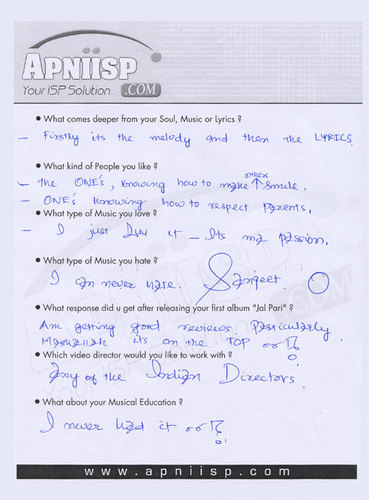 APNIISP
Your ISP Solution... .COM
• What comes deeper from your Soul, Music or Lyrics ?
– Firstly its the melody and then the LYRICS.
• What kind of People you like ?
others
– the ONE's, knowing how to make ↑ smile.
– ONE's knowing how to respect Parents.
• What type of Music you love ?
– I just it – Its my passion.
• What type of Music you hate ?
I can never hate. Sangeet.
• What response did u get after releasing your first album "Jal Pari" ?
Am getting good reviews. Particularly
Mashallah its on the TOP
• Which video director would you like to work with ?
Any of the Indian Directors
• What about your Musical Education ?
I never had it
www.apniisp.com